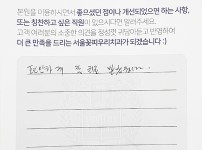 본원을 이용하시면서 좋으셨던 점이나 개선되었으면 하는 사항,
또는 칭찬하고 싶은 직원이 있으시다면 말려주세요.
고객 여러분의 소중한 의견을 정성껏 귀담아듣고 반영하여
더 큰 만족을 드리는 서울꽃피우리치과가 되겠습니다 :)